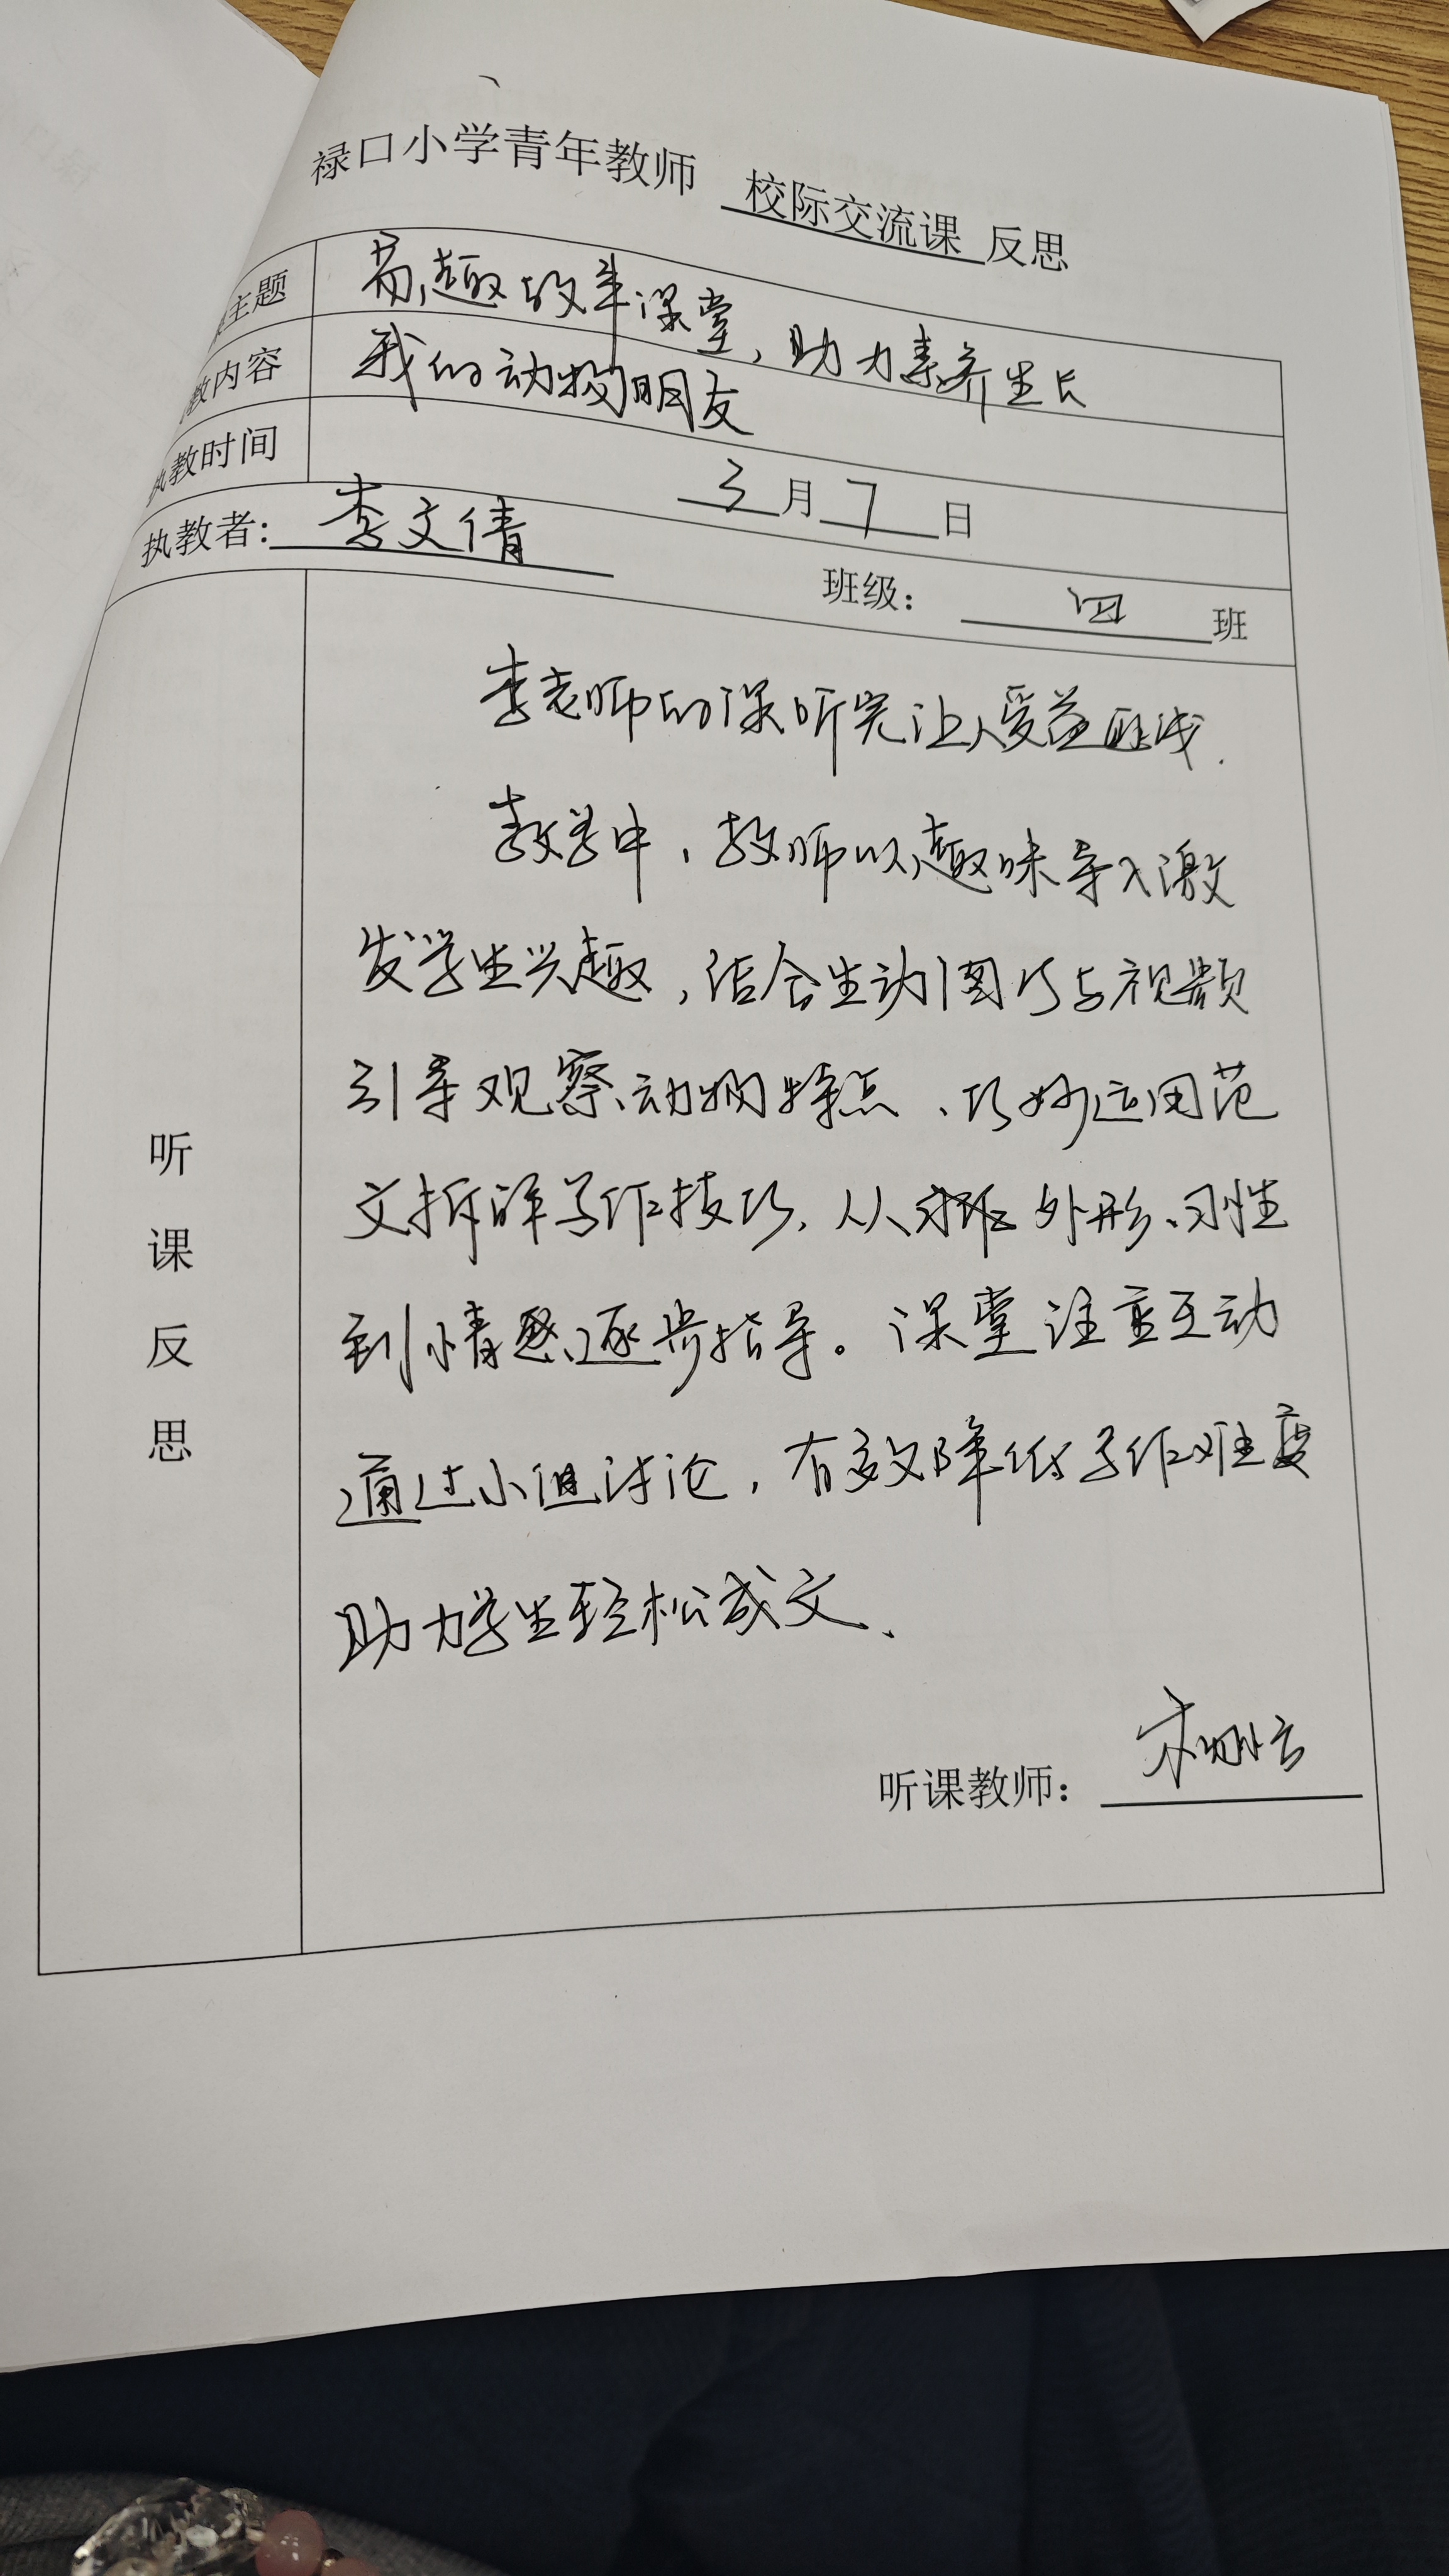 禄口小学青年教师 校际交流课 反思
主题 趣效率课堂，助力素养生长
教内容 我的动物朋友
执教时间 3月7日
执教者：李文倩 班级：四 班
听课反思
李老师的课听完让人受益匪浅.
教学中，教师以趣味导入激
发学生兴趣，结合生动图巧与视频
引导观察动物特点、巧妙运用范
文拆解写作技巧，从 外形、习性
到情感逐步指导。课堂注重互动
通过小组讨论，有效降低写作难度
助力学生轻松成文、
听课教师：